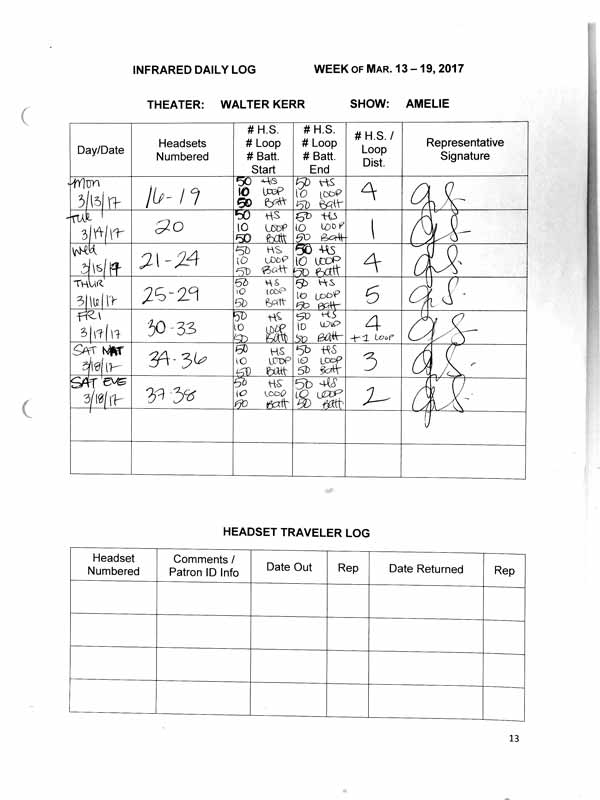 INFRARED DAILY LOG WEEK OF MAR. 13 – 19, 2017
THEATER: WALTER KERR SHOW: AMELIE
Day/Date Headsets Numbered # H.S. # Loop # Batt. Start # H.S. # Loop # Batt. End # H.S. / Loop Dist. Representative Signature
Mon 3/13/17 16-19 50 HS 10 LOOP 50 Batt 50 HS 10 LOOP 50 Batt 4
Tue 3/14/17 20 50 HS 10 LOOP 50 Batt 50 HS 10 LOOP 50 Batt 1
Wed 3/15/17 21-24 50 HS 10 LOOP 50 Batt 50 HS 10 LOOP 50 Batt 4
THUR 3/16/17 25-29 50 HS 10 LOOP 50 Batt 50 HS 10 LOOP 50 Batt 5
FRI 3/17/17 30-33 50 HS 10 LOOP 50 Batt 50 HS 10 LOOP 50 Batt 4 +1 LOOP
SAT MAT 3/18/17 34-36 50 HS 10 LOOP 50 Batt 50 HS 10 LOOP 50 Batt 3
SAT EVE 3/18/17 37-38 50 HS 10 LOOP 50 Batt 50 HS 10 LOOP 50 Batt 2
HEADSET TRAVELER LOG
Headset Numbered Comments / Patron ID Info Date Out Rep Date Returned Rep
13